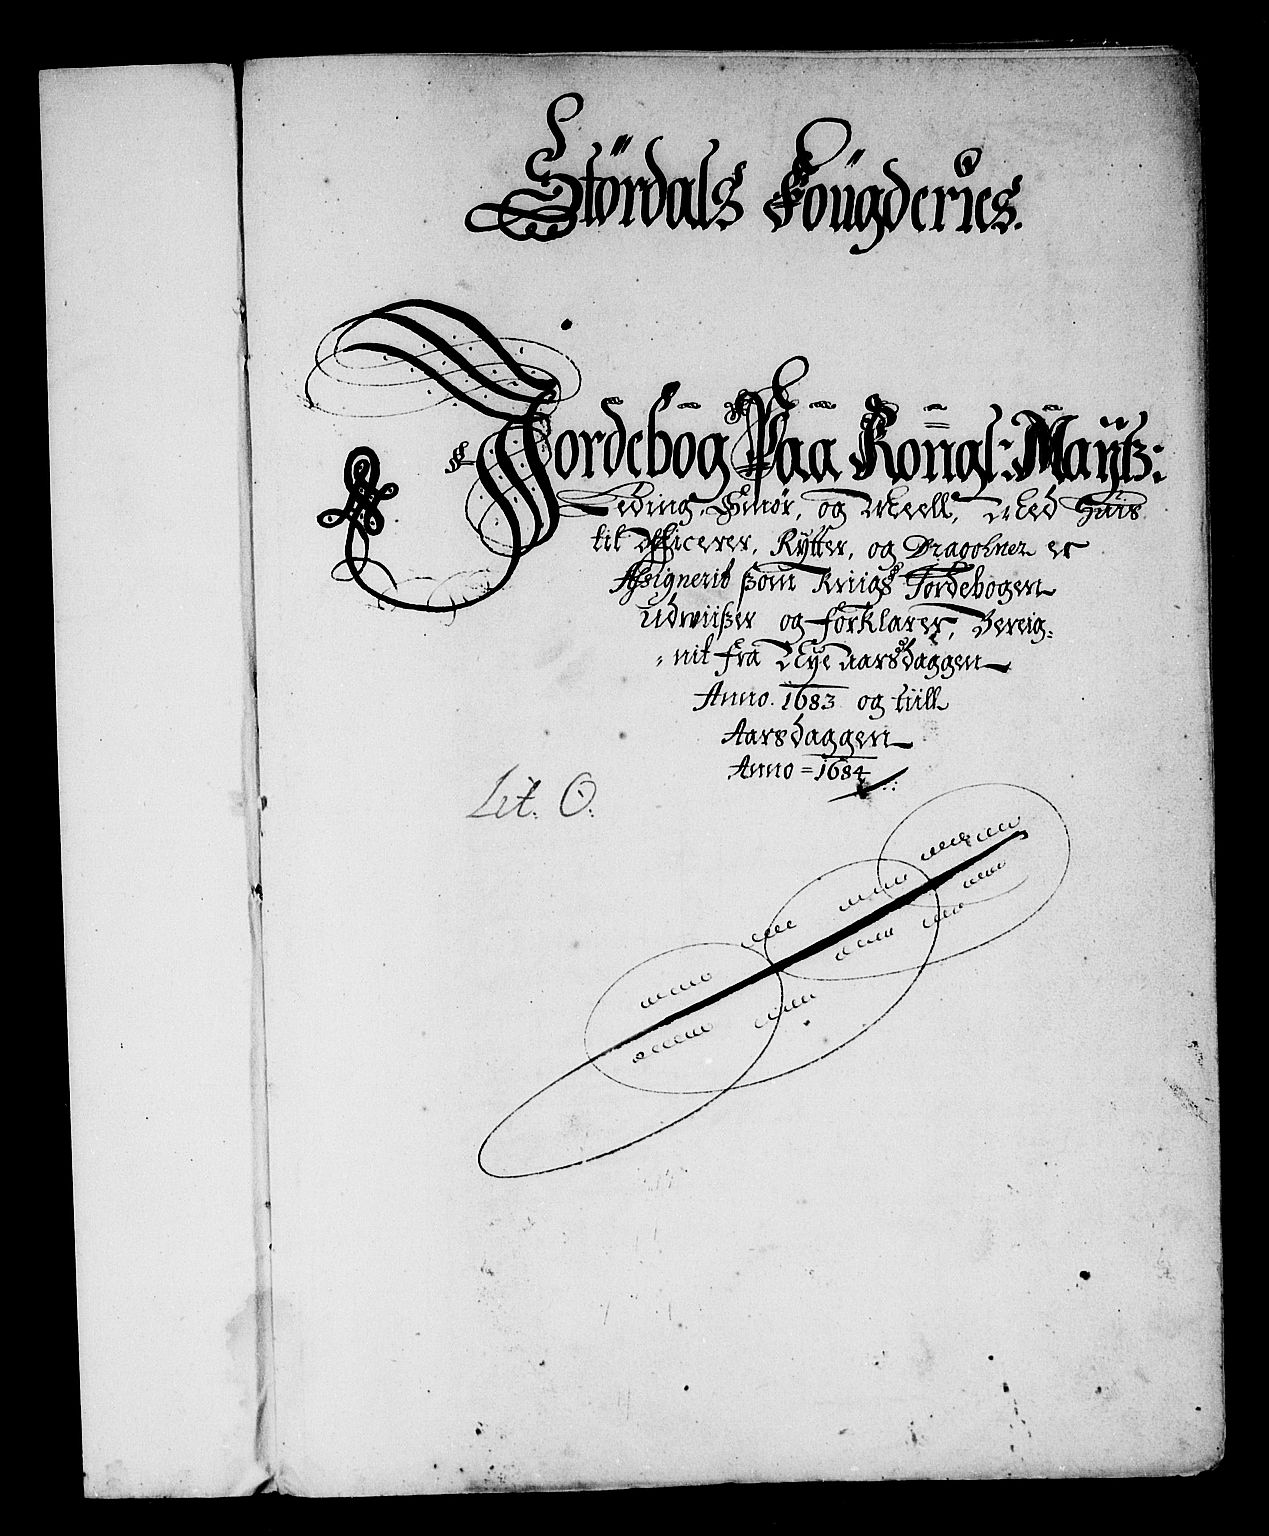 Stördals Foügderies.
Jordebog Paa Kongl: Maÿtz:
Leding, Smör, og Meell, Med Huis
til Officerer, Rÿtter, og Dragohner er
Assignerit ßom Kriigs Jordebogen
Udwiißer og forklarer, Bereig=
nit fra Nÿe aarsdaggen
Anno. 1683 og tiill
Aarsdaggen
Anno = 1684
Lit. O.